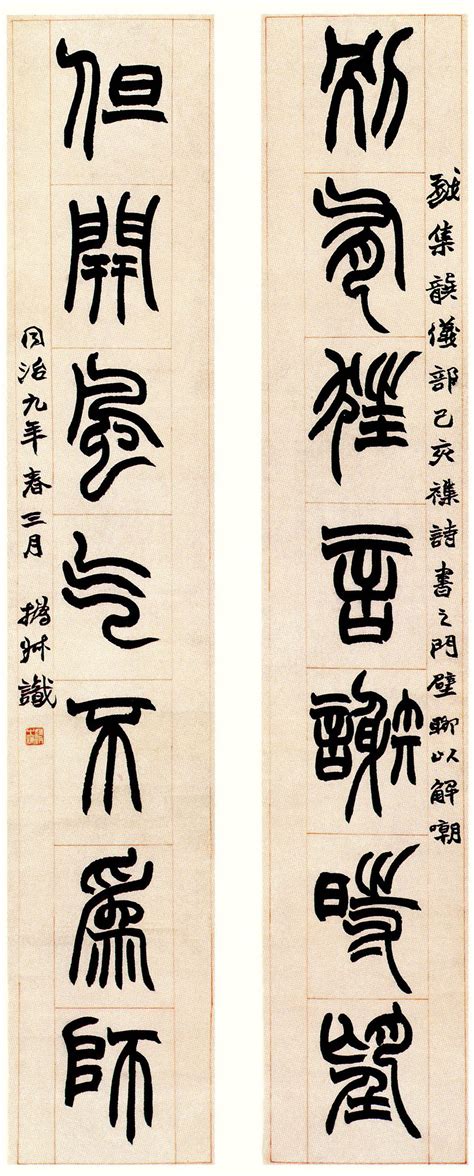 戲集龔儀部己亥襍詩書之門壁聊以解嘲
別有狂言謝時望
但開風气不為師
同治九年春三月 撝叔識